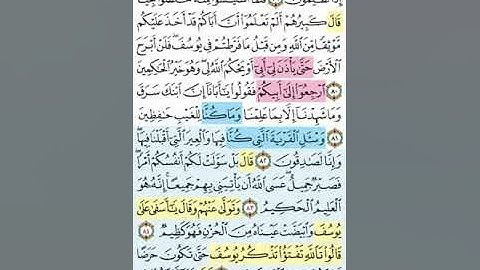 قَالَ كَبِيرُهُمْ أَلَمْ تَعْلَمُوٓا۟ أَنَّ أَبَاكُمْ قَدْ أَخَذَ عَلَيْكُم
مَّوْثِقًا مِّنَ ٱللَّهِ وَمِن قَبْلُ مَا فَرَّطتُمْ فِى يُوسُفَ ۖ فَلَنْ أَبْرَحَ
ٱلْأَرْضَ حَتَّىٰ يَأْذَنَ لِىٓ أَبِىٓ أَوْ يَحْكُمَ ٱللَّهُ لِى ۖ وَهُوَ خَيْرُ ٱلْحَٰكِمِينَ
٨٠ ٱرْجِعُوٓا۟ إِلَىٰٓ أَبِيكُمْ فَقُولُوا۟ يَٰٓأَبَانَآ إِنَّ ٱبْنَكَ سَرَقَ
وَمَا شَهِدْنَآ إِلَّا بِمَا عَلِمْنَا وَمَا كُنَّا لِلْغَيْبِ حَٰفِظِينَ
٨١ وَسْـَٔلِ ٱلْقَرْيَةَ ٱلَّتِى كُنَّا فِيهَا وَٱلْعِيرَ ٱلَّتِىٓ أَقْبَلْنَا فِيهَا ۖ
وَإِنَّا لَصَٰدِقُونَ ٨٢ قَالَ بَلْ سَوَّلَتْ لَكُمْ أَنفُسُكُمْ أَمْرًا ۖ
فَصَبْرٌ جَمِيلٌ ۖ عَسَى ٱللَّهُ أَن يَأْتِيَنِى بِهِمْ جَمِيعًا ۚ إِنَّهُۥ هُوَ
ٱلْعَلِيمُ ٱلْحَكِيمُ ٨٣ وَتَوَلَّىٰ عَنْهُمْ وَقَالَ يَٰٓأَسَفَىٰ عَلَىٰ
يُوسُفَ وَٱبْيَضَّتْ عَيْنَاهُ مِنَ ٱلْحُزْنِ فَهُوَ كَظِيمٌ ٨٤
قَالُوا۟ تَٱللَّهِ تَفْتَؤُا۟ تَذْكُرُ يُوسُفَ حَتَّىٰ تَكُونَ حَرَضًا